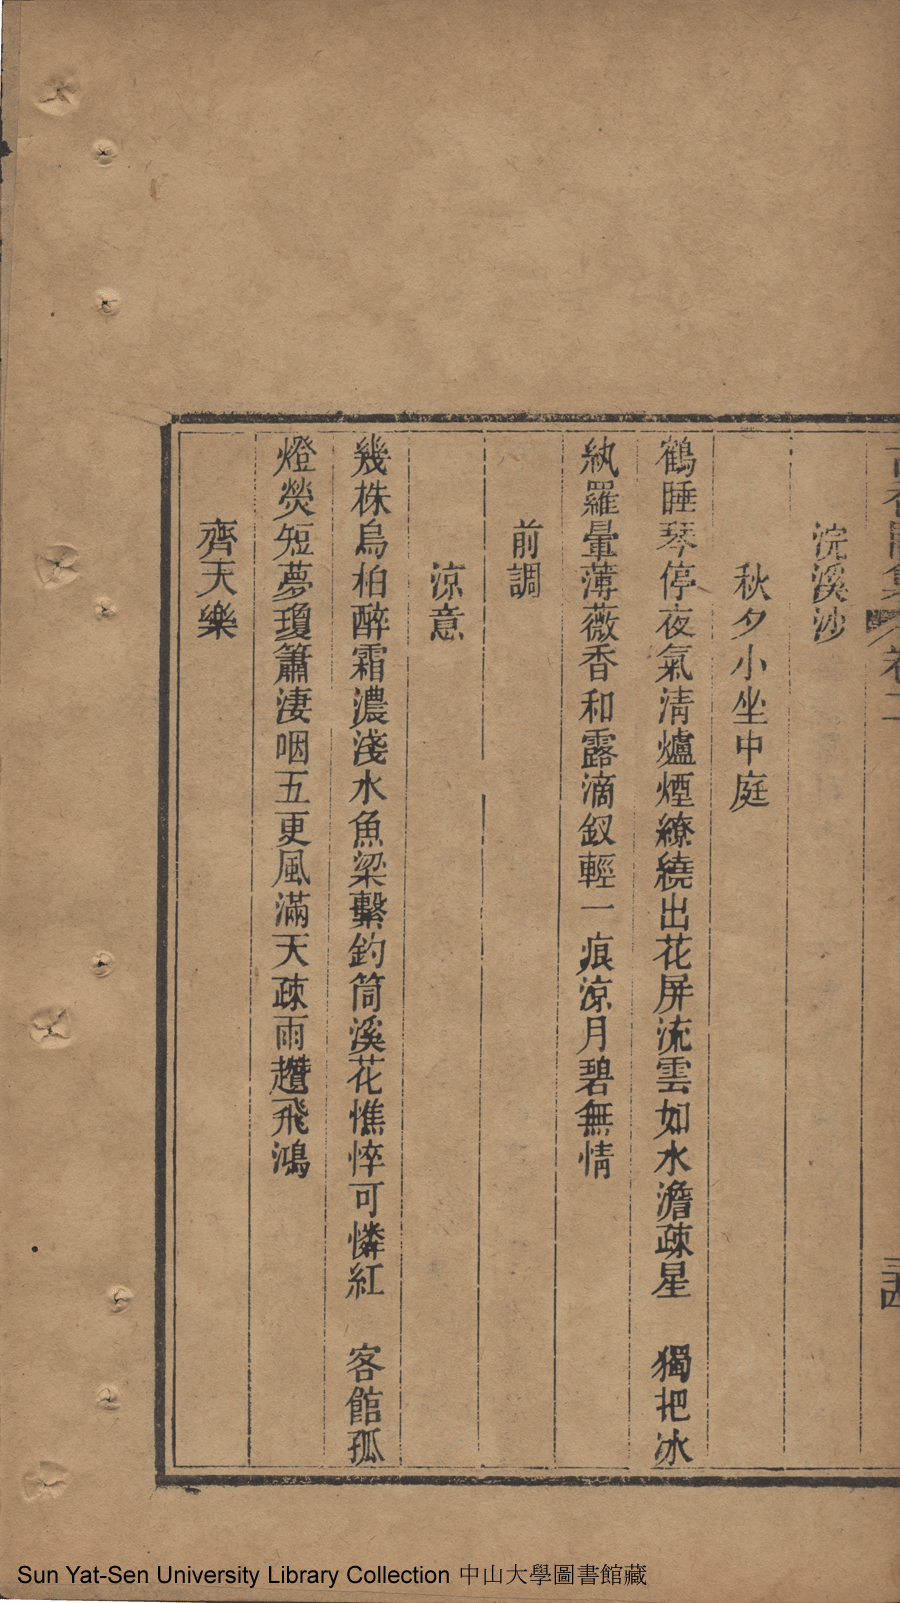 浣溪沙
秋夕小坐中庭
鶴睡琴停夜氣清爐煙繚繞出花屏流雲如水澹疎星　獨把冰
紈羅暈薄薇香和露滴釵輕一痕涼月碧無情
前調
涼意
幾株烏桕醉霜濃淺水魚梁繫釣筒溪花憔悴可憐紅　客館孤
燈熒短夢瓊簫淒咽五更風滿天疎雨趲飛鴻
齊天樂
Sun Yat-Sen University Library Collection 中山大學圖書館藏